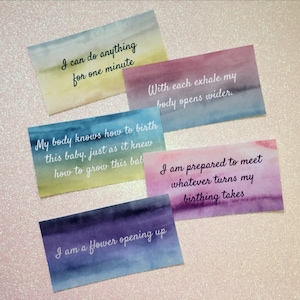 I can do anything
for one minute
With each exhale my
body opens wider.
My body knows how to birth
this baby, just as it knew
how to grow this bab
I am prepared to meet
whatever turns my
birthing takes
I am a flower opening up